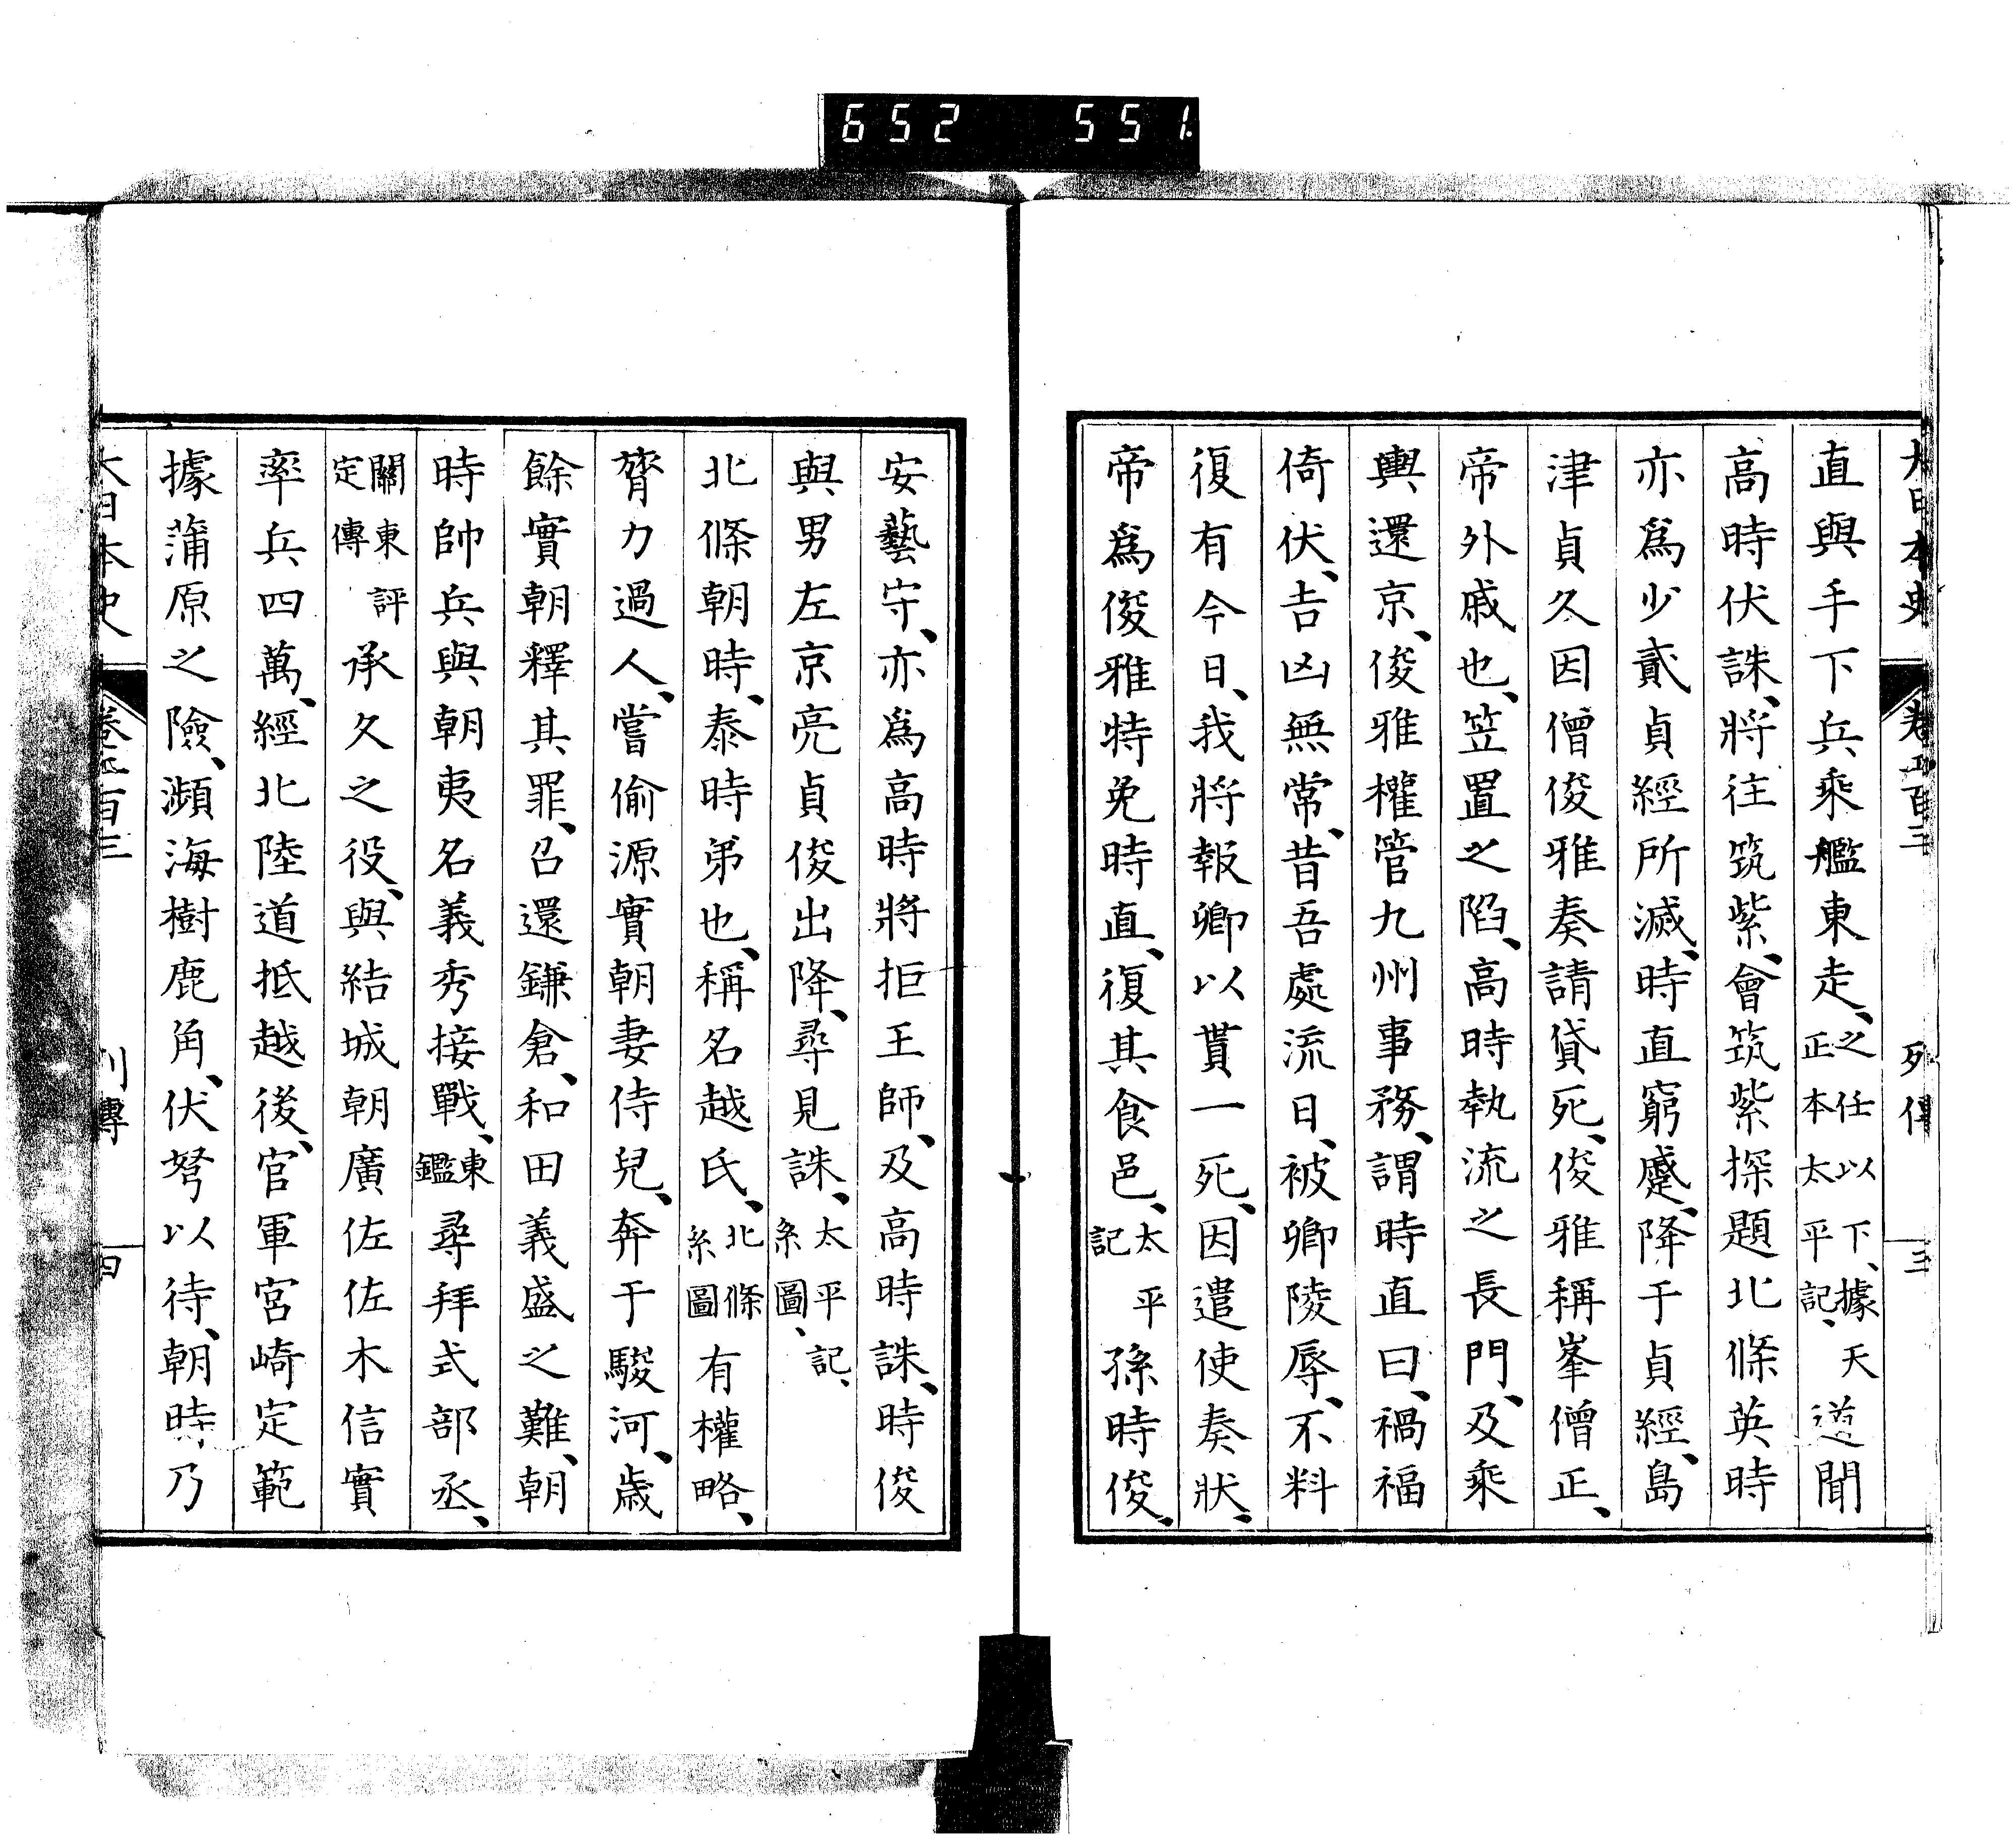 652 551.
大日本史 卷 百三 列傳 三
直與手下兵乘艦東走、之任以下、據天正本太平記、道聞
高時伏誅、將往筑紫、會筑紫探題北條英時
亦爲少貳貞經所滅、時直窮蹙、降于貞經、島
津貞久因僧俊雅奏請貸死、俊雅稱峯僧正、
帝外戚也、笠置之陷、高時執流之長門、及乘
輿還京、俊雅權管九州事務、謂時直曰、禍福
倚伏、吉凶無常、昔吾處流日、被卿陵辱、不料
復有今日、我將報卿以貰一死、因遣使奏狀、
帝爲俊雅特免時直、復其食邑、太平記 孫時俊、
安藝守、亦爲高時將拒王師、及高時誅、時俊
與男左京亮貞俊出降、尋見誅、太平記、系圖、
北條朝時、泰時弟也、稱名越氏、北條系圖 有權略、
膂力過人、嘗偷源實朝妻侍兒、奔于駿河、歲
餘實朝釋其罪、召還鎌倉、和田義盛之難、朝
時帥兵與朝夷名義秀接戰、東鑑 尋拜式部丞、
關東評定傳 承久之役、與結城朝廣佐佐木信實
率兵四萬、經北陸道抵越後、官軍宮崎定範
據蒲原之險、瀕海樹鹿角、伏弩以待、朝時乃
大日本史 卷 百三 列傳 四